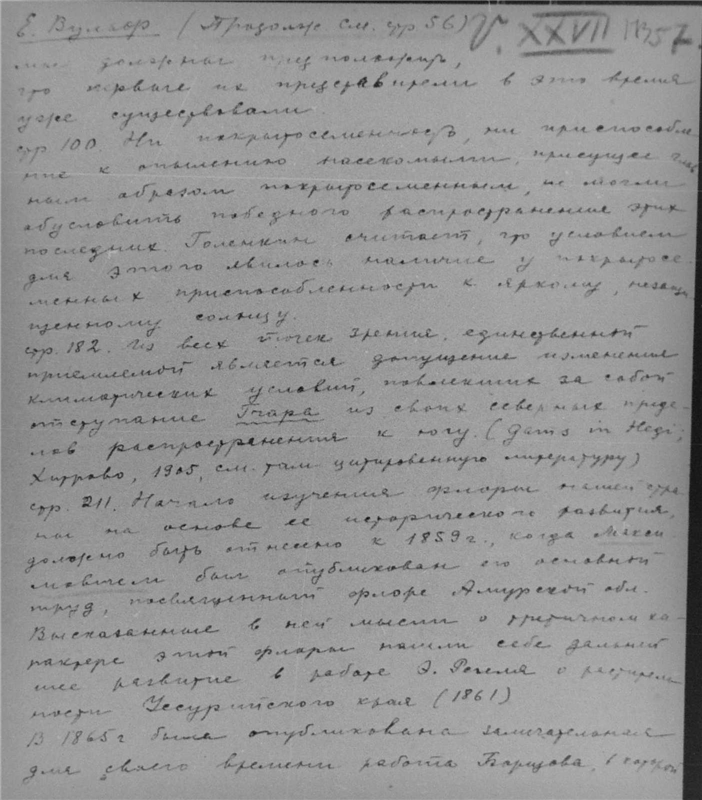 Е. Вульф. (Продолж. см. стр 56) V. XXVII 57.
мы должны предположить,
что первые их представители в это время
уже существовали.
стр 100. Ни покрытосеменность, ни приспособле-
ние к опылению насекомыми, присущее глав
ным образом покрытосеменным, не могли
обусловить победного распространения этих
последних. Голенкин считает, что условием
для этого явилось наличие у покрытосе-
менных приспособленности к яркому, незащи-
щенному солнцу.
стр. 182. Из всех точек зрения, единственной
приемлемой является допущение изменения
климатических условий, повлекших за собой
отступание Trapa из своих северных преде-
лов распространения к югу. (Gams in Hegi;
Хитрово, 1905, см. там цитированную литературу)
стр. 211. Начало изучения флоры нашей стра
ны на основе ее исторического развития,
должно быть отнесено к 1859 г., когда Макси-
мовичем был опубликован его основной
труд, посвященный флоре Амурской обл.
Высказанные в ней мысли о третичном ха-
рактере этой флоры нашли себе дальней
шее развитие в работе Э. Регеля о раститель
ности Уссурийского края (1861)
В 1865 г была опубликована замечательная
для своего времени работа Борщова, в которой